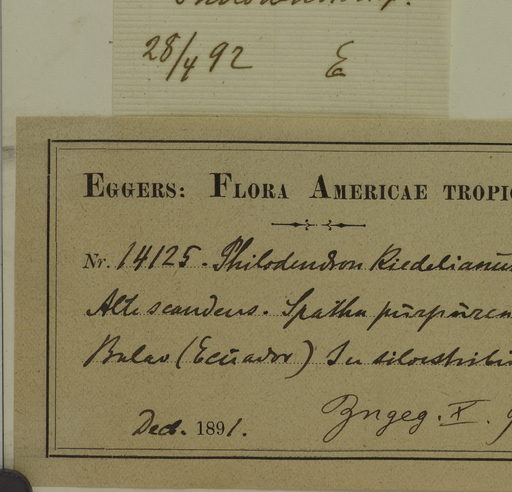 28/4 92 E
EGGERS: FLORA AMERICAE TROPIC
Nr. 14125. Philodendron Riedelianum
Alte scandens. Spatha purpurea
Balao (Ecuador) In silvestribus
Dec. 1891.